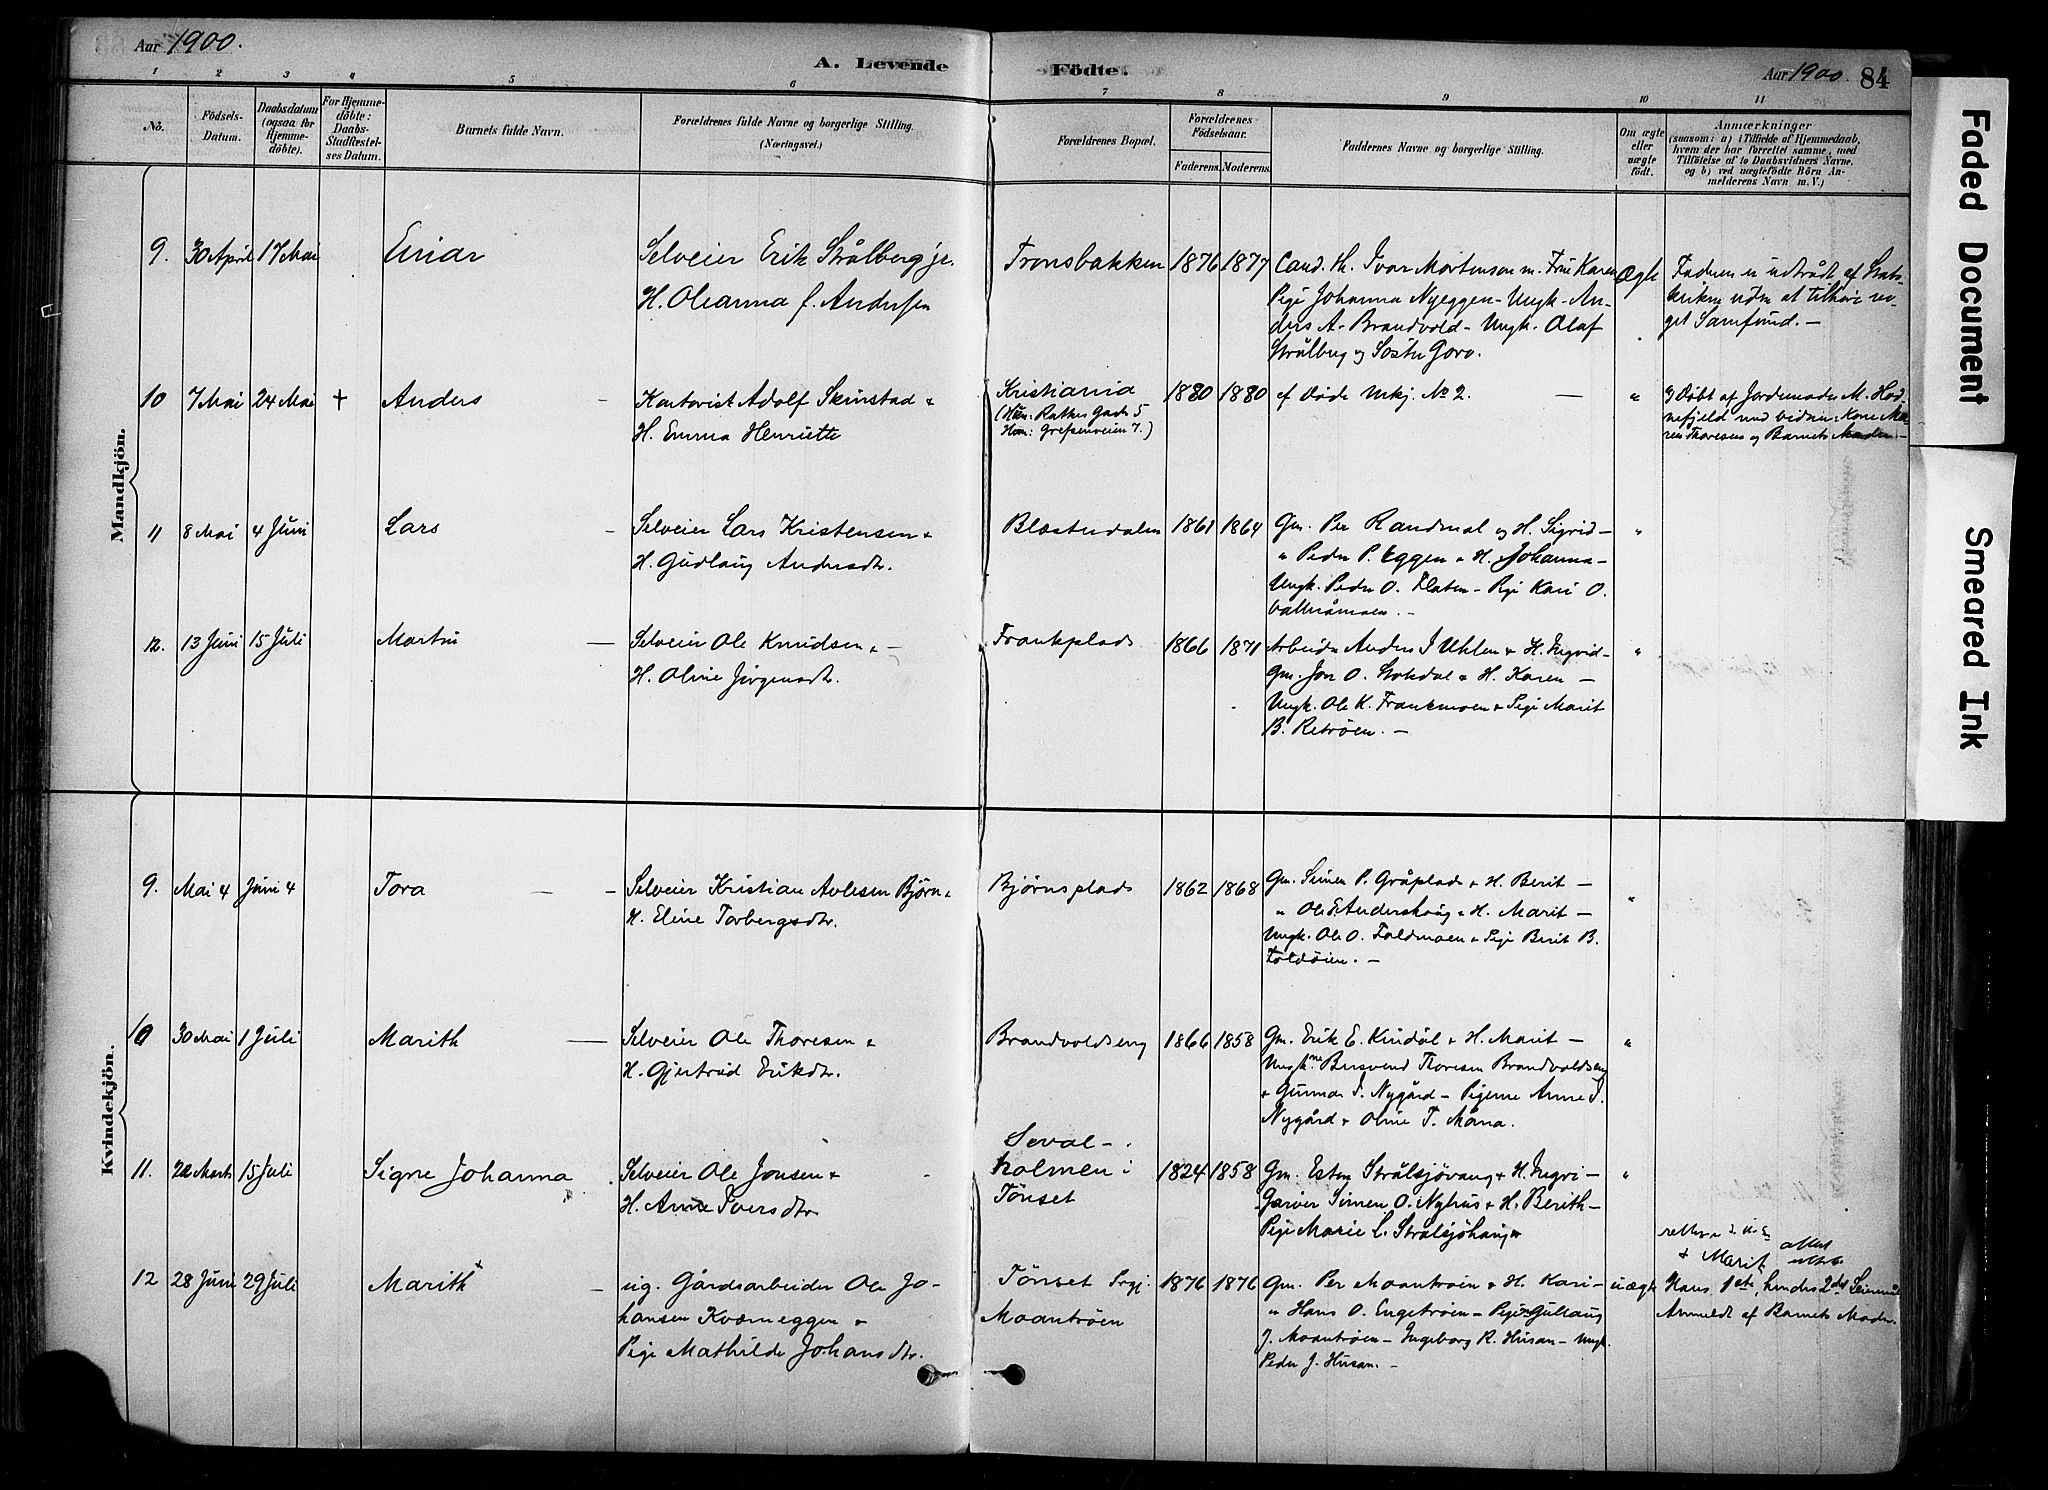 Aar 1900.
A. Levende Födte.
Aar 1900. 84
1 2 3 4 5 6 7 8 9 10 11
No.
Födsels-Datum.
Daabsdatum (ogsaa for Hjemme-döbte).
For Hjemme-döbte: Daabs-Stadfæstel-ses Datum.
Barnets fulde Navn.
Forældrenes fulde Navne og borgerlige Stilling.
(Næringsvei.)
Forældrenes Bopæl.
Forældrenes Födselsaar.
Faderens. Moderens.
Faddernes Navne og borgerlige Stilling.
Om ægte eller uægte födt.
Anmærkninger
(saasom: a) i Tilfælde af Hjemmedaab,
hvem der har forrettet samme, med
Tilföielse af to Daabsvidners Navne.
og b) ved uægtefödte Börn An-
melderens Navn m. V.)
Mandkjön.
9. 30 April 17 Mai Einar Selveier Erik Strålberg je. Tronsbakken 1876 1877 Cand. th. Ivar Mortenson m. Frue Karen Ægte Faderen er udtrådt af Stats-
H. Oleanna f. Andersen Pige Johanna Nyeggen - Ungk. An- kirken uden at tilhøre no-
ders A. Brandvold - Ungk. Olaf get Samfund. -
Strålberg og Søster Goro.
10 7 Mai 24 Mai + Anders - Kontorist Adolf Skinstad & Kristiania 1880 1880 ef Døde Mkj. No 2. - " Døbt af Jordemoder M. Hod-
H. Emma Henriette (Han: Rathkes Gade 5 nefjeld med vidner: Kone Ma-
Hun: Grefsenveien 7.) ren Thoresen og Barnets Moder -
11 8 Mai 4 Juni Lars - Selveier Lars Kristensen & Blæsterdalen 1861 1864 Gm. Per Randmæl og H. Sigrid - "
H. Gudlaug Andersdtr. " Peder P. Eggen & H. Johanna -
Ungk. Peder O. Flaten - Pige Kari O.

12. 13 Juni 15 Juli Martin - Selveier Ole Knudsen & - Frankplads 1866 1871 Arbeider Anders J Uhlen & H. Ingrid - "
H. Oline Jørgensdtr. Gm. Jon O. Stokdal & H. Karen -
Ungk. Ole K. Frankmoen & Pige Marit
B. Retrøen. -
Kvindekjön.
9. Mai 4 Juni 4 Tora - - Selveier Kristian Avlesen Bjørn & Bjørnsplads 1862 1868 Gm. Simen P. Gråplads & H. Berit - "
H. Eline Torbergsdtr. " Ole E. Andershaug & H. Marit -
Ungk. Ole O. Foldmoen & Pige Berit B.
Foldøien. -
10 30 Mai 1 Juli Marith - Selveier Ole Thoresen & Brandvoldseng 1866 1858 Gm. Erik E. Kindøl & H. Marit - "
H. Gjertrud Eriksdtr. Ungk.ne Bersvend Thoresen Brandvoldseng
& Gunnar T. Nygård - Pigerne Anne T.
Nygård & Oline T. Måna.
11. 22 Marts 15 Juli Signe Johanna Selveier Ole Jonsen & - Saval- 1824 1858 Gm. Esten Strålsjøvang & H. Ingri - "
H. Anne Iversdtr. holmen i Garver Simen O. Nyhus & H. Berith -
Tönset Pige Marie L. Strålsjöhaug
12 28 Juni 29 Juli Marith - ug. Gårdsarbeider Ole Jo- Tönset Srgj. 1876 1876 Gm. Per Moantrøen & H. Kari - uægte Hans 1ste, hendes 2det Leiermål
hansen Kværneggen & Moantröen " Hans O. Engetrøen - Pige Gulaug Anmeldt af Barnets Moder.
Pige Mathilde Johansdtr. J. Moantrøen - Ingeborg R. Husan - Ungk.
Peder J. Husan. -
+ Marit
Faded Document
Smeared Ink